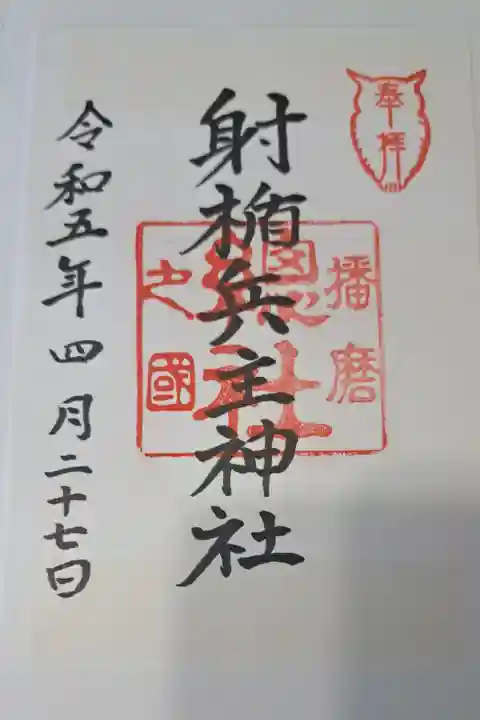 奉拝
播磨
之國
総社
射楯兵主神社
令和五年四月二十七日